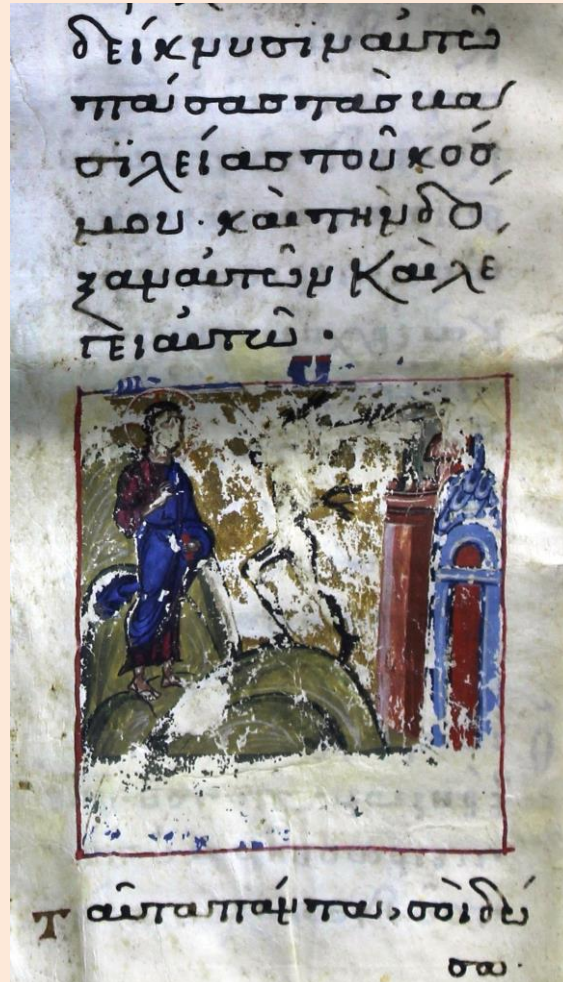 δείκνυσϊν αυτῶ
πάσας τὰς βα
σϊλείας τοῦ κόσ
μου· καὶ τὴν δό
ξαν αυτῶν καὶ λέ
γει αυτῶ·
Ταῦτα πάντα, σοὶ δώ
σω·